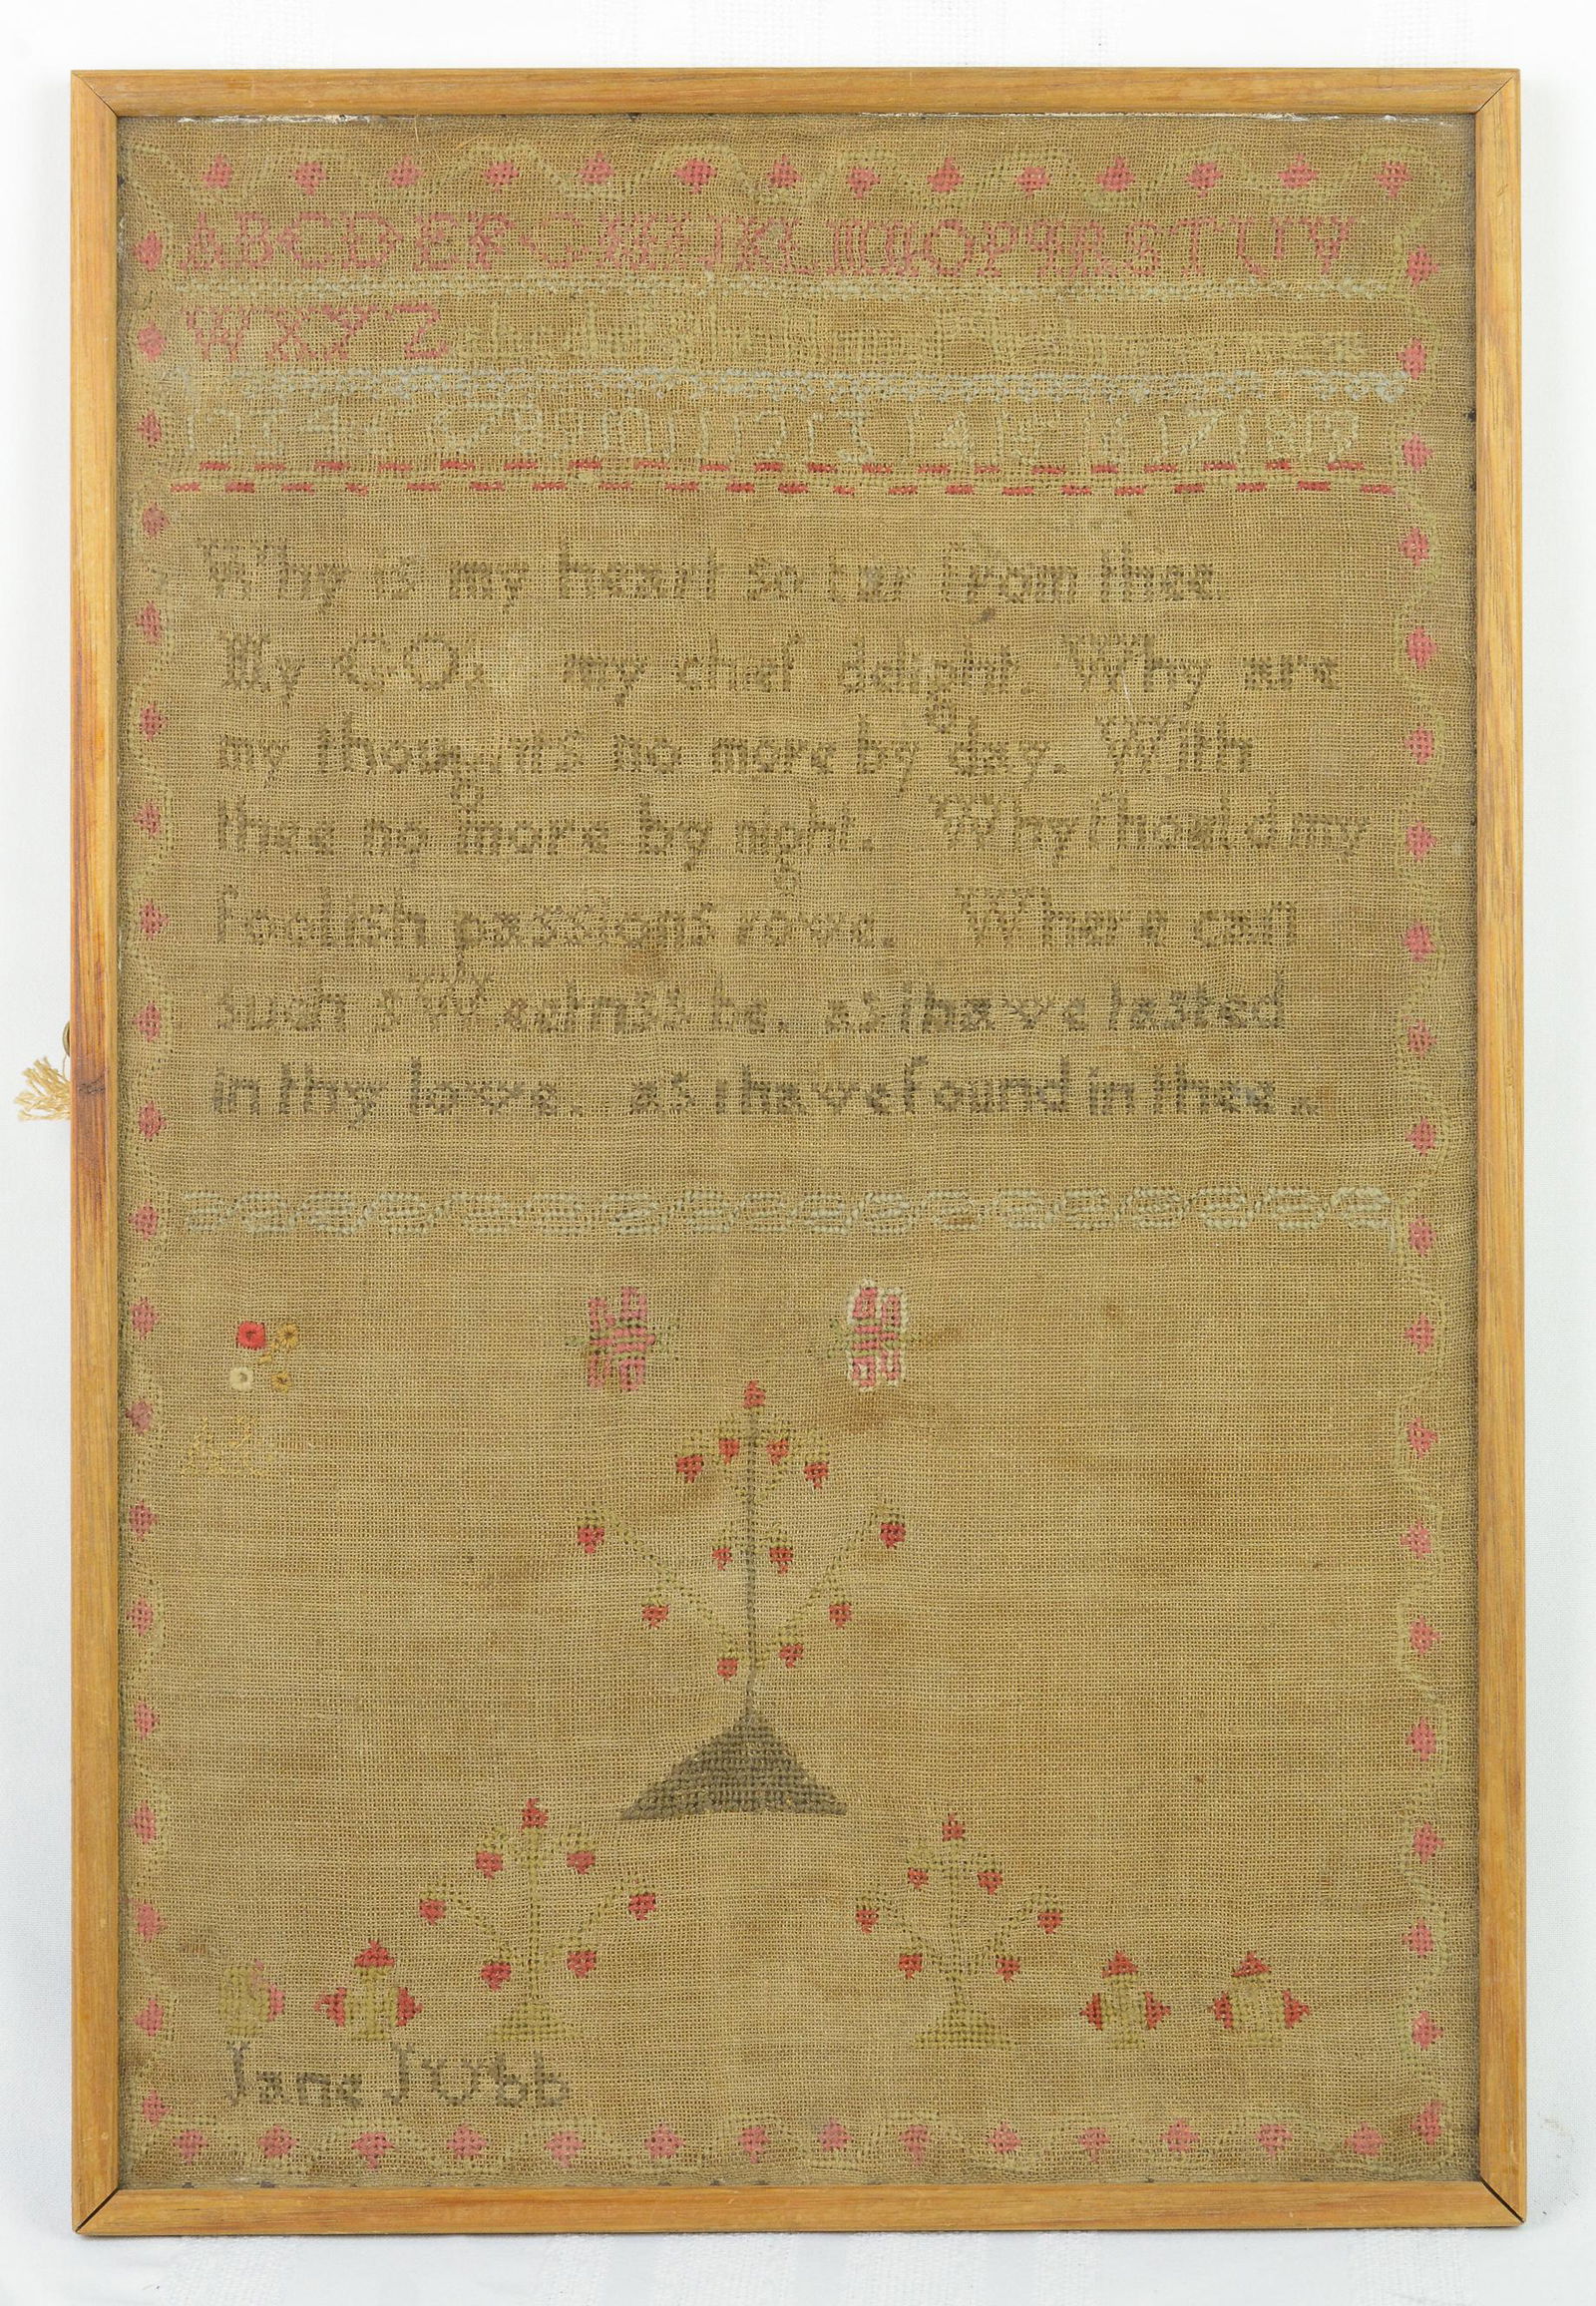 ABCDEFGHIJKLMNOPQRSTUV
WXYZ
Why is my heart so far from thee
My GOd my chef delight. Why are
my thoughts no more by day. With
thee no more by night. Why should my
foolish passions rove. Where can
such sWeetnss be. as i have tasted
in thy love. as i have found in thee.
Jane JUbb